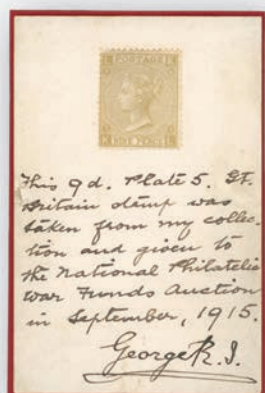 POSTAGE
NINE PENCE
This 9d. Plate 5. Gt.
Britain stamp was
taken from my collec-
tion and given to
the National Philatelic
War Funds Auction
in September, 1915.
George R.I.